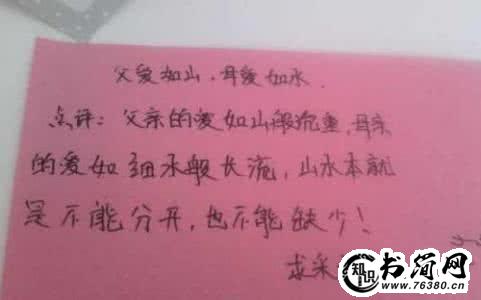 父爱如山，母爱如水．
点评：父亲的爱如山般沉重，母亲
的爱如细水般长流，山水本就
是不能分开，也不能缺少！
求采
知识
书简网
www.76380.cn